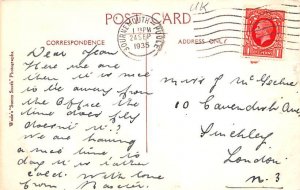 UK
POST CARD
CORRESPONDENCE
ADDRESS ONLY.
BOURNEMOUTH POOLE
1 PM
24 SEP
1935
Dear Jean
Here we are
then it is nice
to be away from
the office the
time does fly
doesn't it?
We are having
a nice time to
day it is rather
cold. With love
from
10 Cavendish Ave
Finchley
London
N. 3